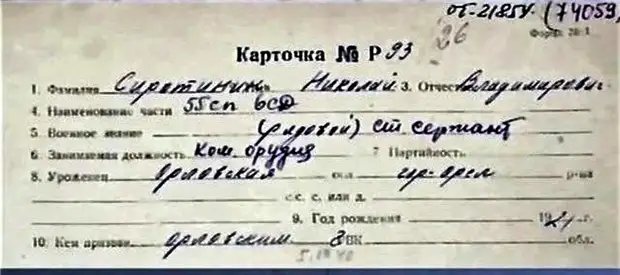 от-21854. (74059,
26 Форма № 1
Карточка № Р 93
1. Фамилия Сиротинин Николай 3. Отчество Владимирович
4. Наименование части 55 сп 6сд
5. Военное звание (рядовой) ст сержант
6. Занимаемая должность Ком. орудия 7 Партийность
8. Уроженец Орловская обл. гор-орел р-на
с.с. с. или д.
9. Год рождения 1921 г.
10. Кем призван орловским ВК обл.